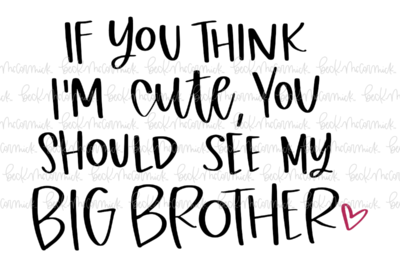 IF YOU THINK
I'M cute, YOU
SHOULD SEE MY
BIG BROTHER